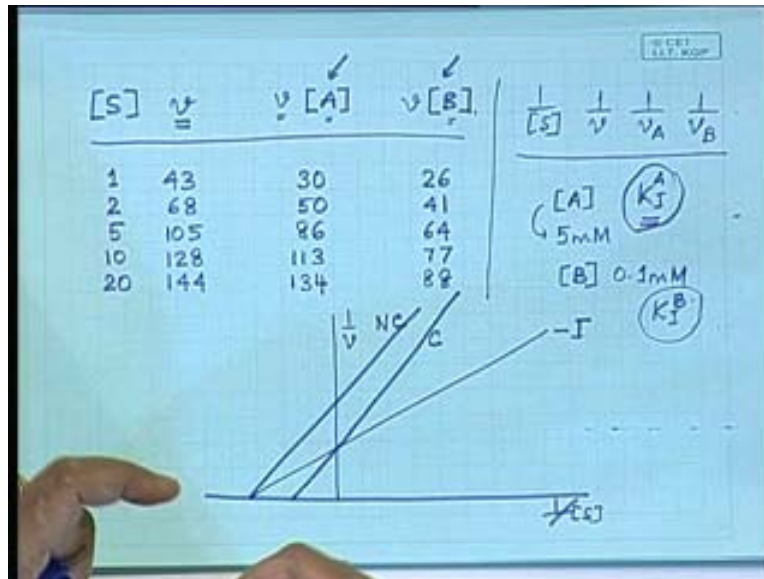 © CET
I.I.T. KGP
[S] v v [A] v [B]
1 43 30 26
2 68 50 41
5 105 86 64
10 128 113 77
20 144 134 88
1/[S] 1/v 1/v_A 1/v_B
[A] K_I^A
5mM
[B] 0.1mM
K_I^B
1/v NC C -I
1/[S]